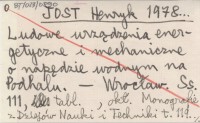 JOST Henryk 1978...
Ludowe urządzenia ener-
getyczne i mechaniczne
o napędzie wodnym na
Podhalu. — Wrocław. Ss.
111, tabl. Monografie
z Dziejów Nauki i Techniki t. 111.